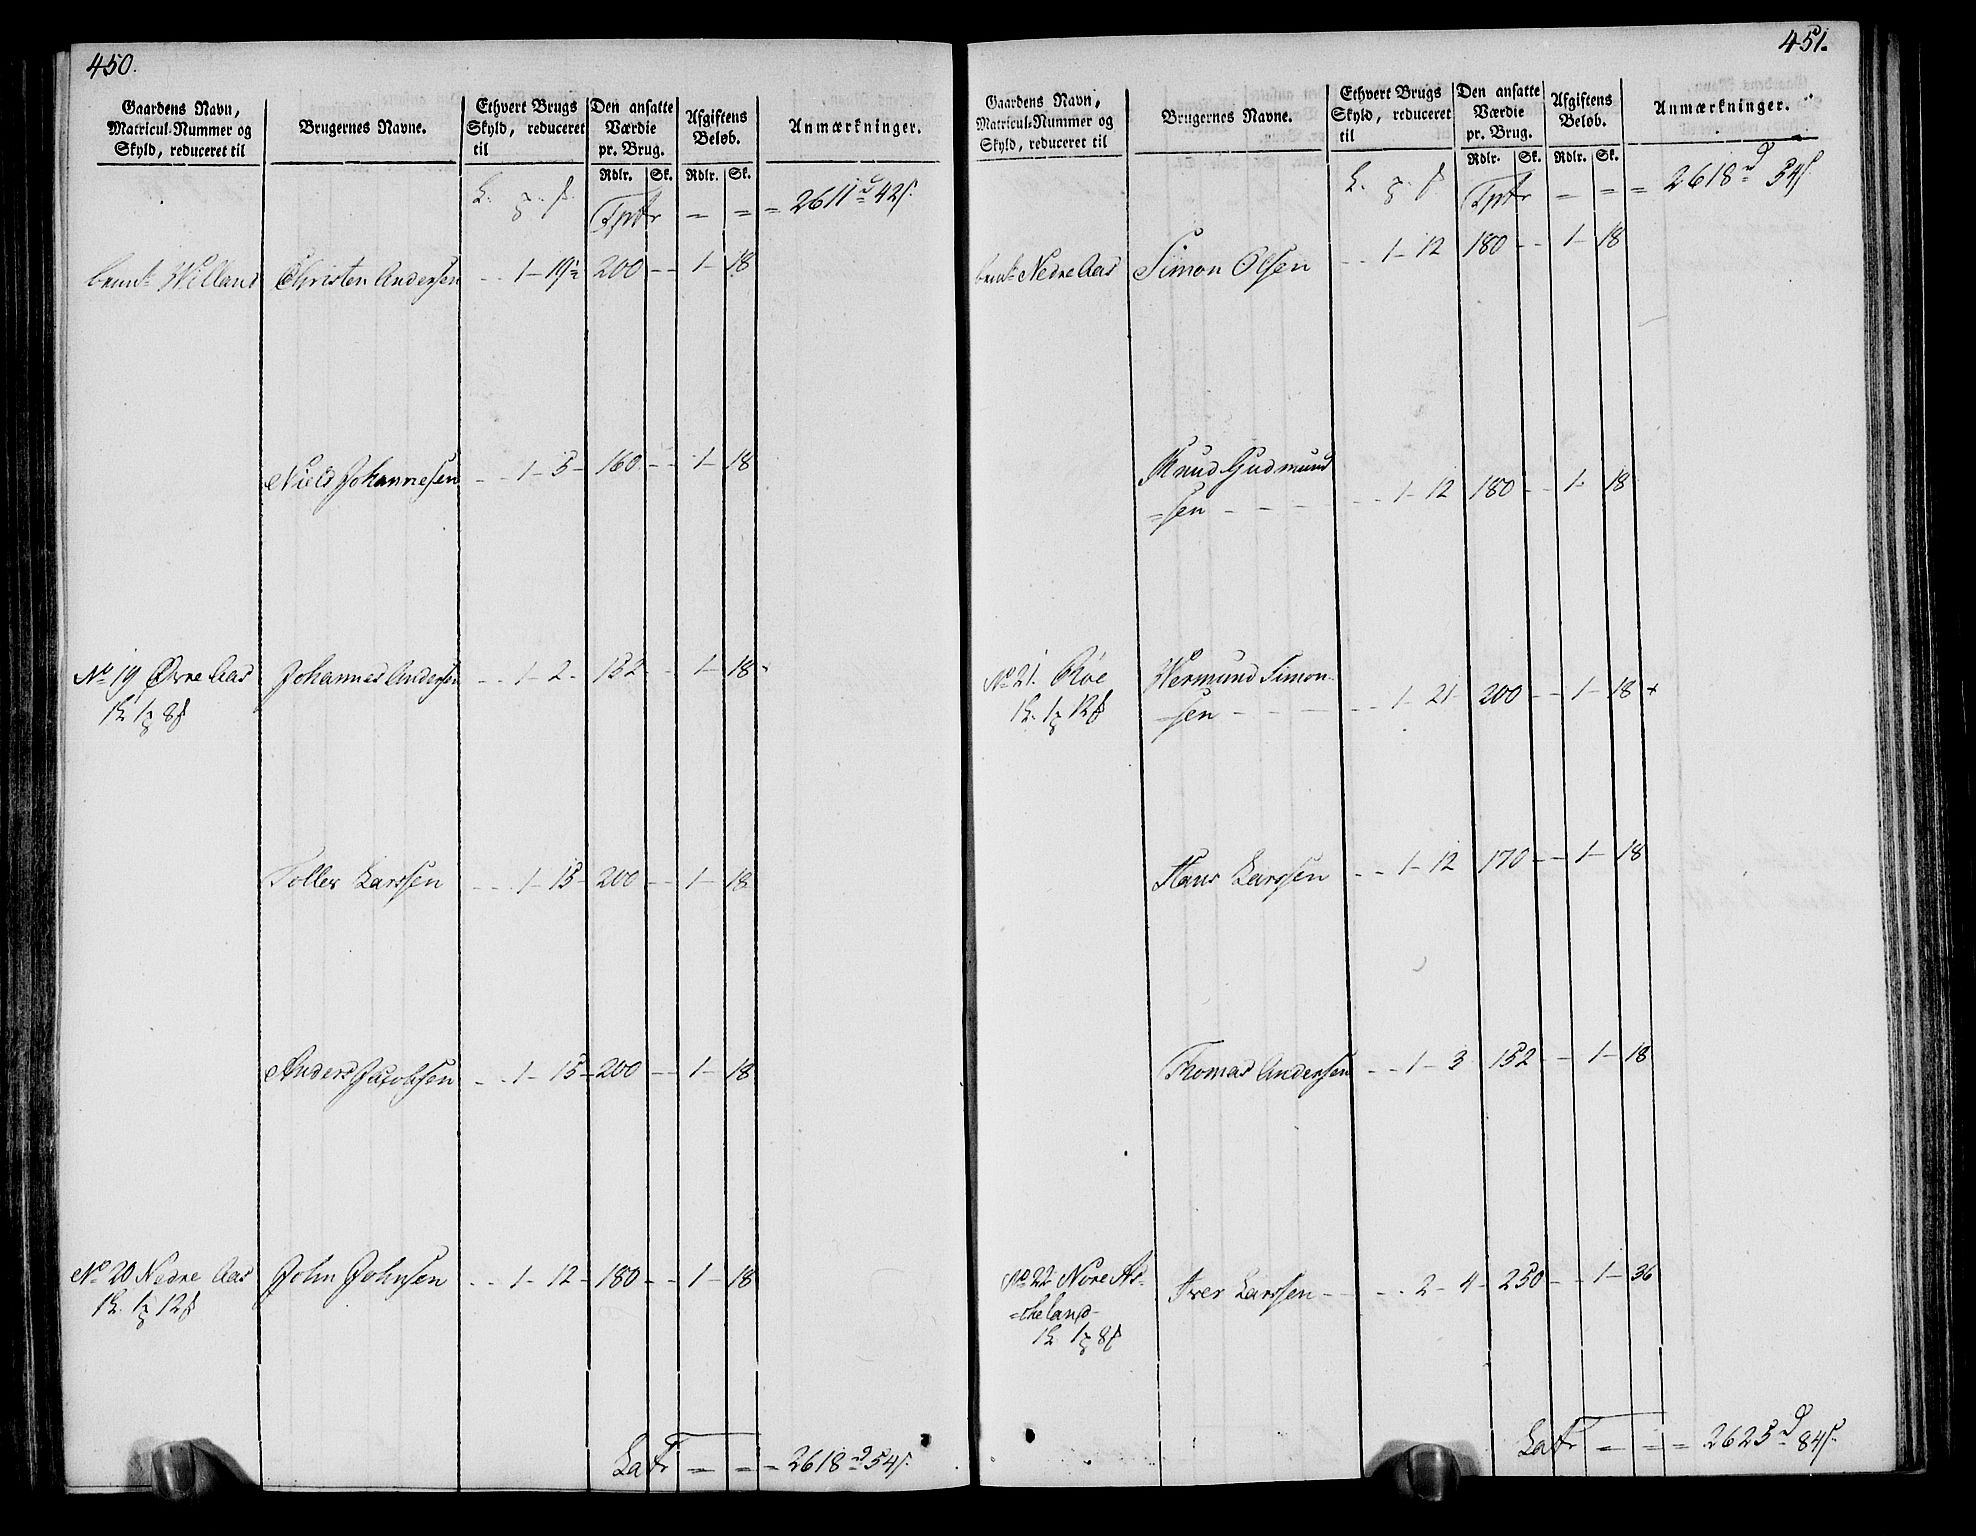 450.
Gaardens Navn, Matricul-Nummer og Skyld, reduceret til
Brugernes Navne.
Ethvert Brugs Skyld, reduceret til
Den ansatte Værdie pr. Brug.
Afgiftens Beløb.
Anmærkninger.
Rdlr. Sk. Rdlr. Sk.
Tptr = = = 2611 d 42 s.
Willand Christen Andersen - - 1 - 19½ 200 - - 1 - 18
Niels Johannesen - - 1 - 5 - 160 - - 1 - 18
No 19 Øvre Aas Johannes Andersen - - 1 - 2 - 152 - - 1 - 18
Toller Larssen - - 1 - 15 - 200 - - 1 - 18
Anders Jacobsen - - 1 - 15 - 200 - - 1 - 18
No 20 Nedre Aas John Johnsen - - 1 - 12 - 180 - - 1 - 18
Latr = = = 2618 d 54 s.
451.
Gaardens Navn, Matricul-Nummer og Skyld, reduceret til
Brugernes Navne.
Ethvert Brugs Skyld, reduceret til
Den ansatte Værdie pr. Brug.
Afgiftens Beløb.
Anmærkninger.
Rdlr. Sk. Rdlr. Sk.
Tptr = = = 2618 d 54 s
Nedre Aas Simon Olsen - - 1 - 12 180 - - 1 - 18
Knud Gudmund
=sen - - - - - 1 - 12 180 - - 1 - 18
No 21. Røe Wermund Simon-
=sen - - - - - 1 - 21 - 200 - - 1 - 18 +
Hans Larssen - - 1 - 12 170 - - 1 - 18
Thomas Andersen - - 1 - 3 152 - - 1 - 18
No 22 Nore As-
=keland
Iver Larssen - - - 2 - 4 - 250 - - 1 - 36
Latr = = = 2625 d 84 s.